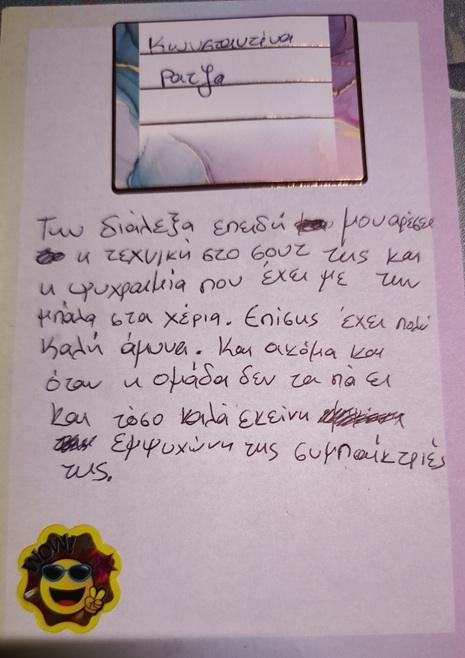 Κωνσταντίνα
Ρατζα
Την διάλεξα επειδή μου αρέσει
η τεχνική στο σουτ της και
η ψυχραιμία που έχει με την
μπάλα στα χέρια. Επίσης έχει πολύ
καλή άμυνα. Και ακόμα και
όταν η ομάδα δεν τα πάει
και τόσο καλά εκείνη
εμψυχώνη της συμπαίκτριές
της.
WOW!